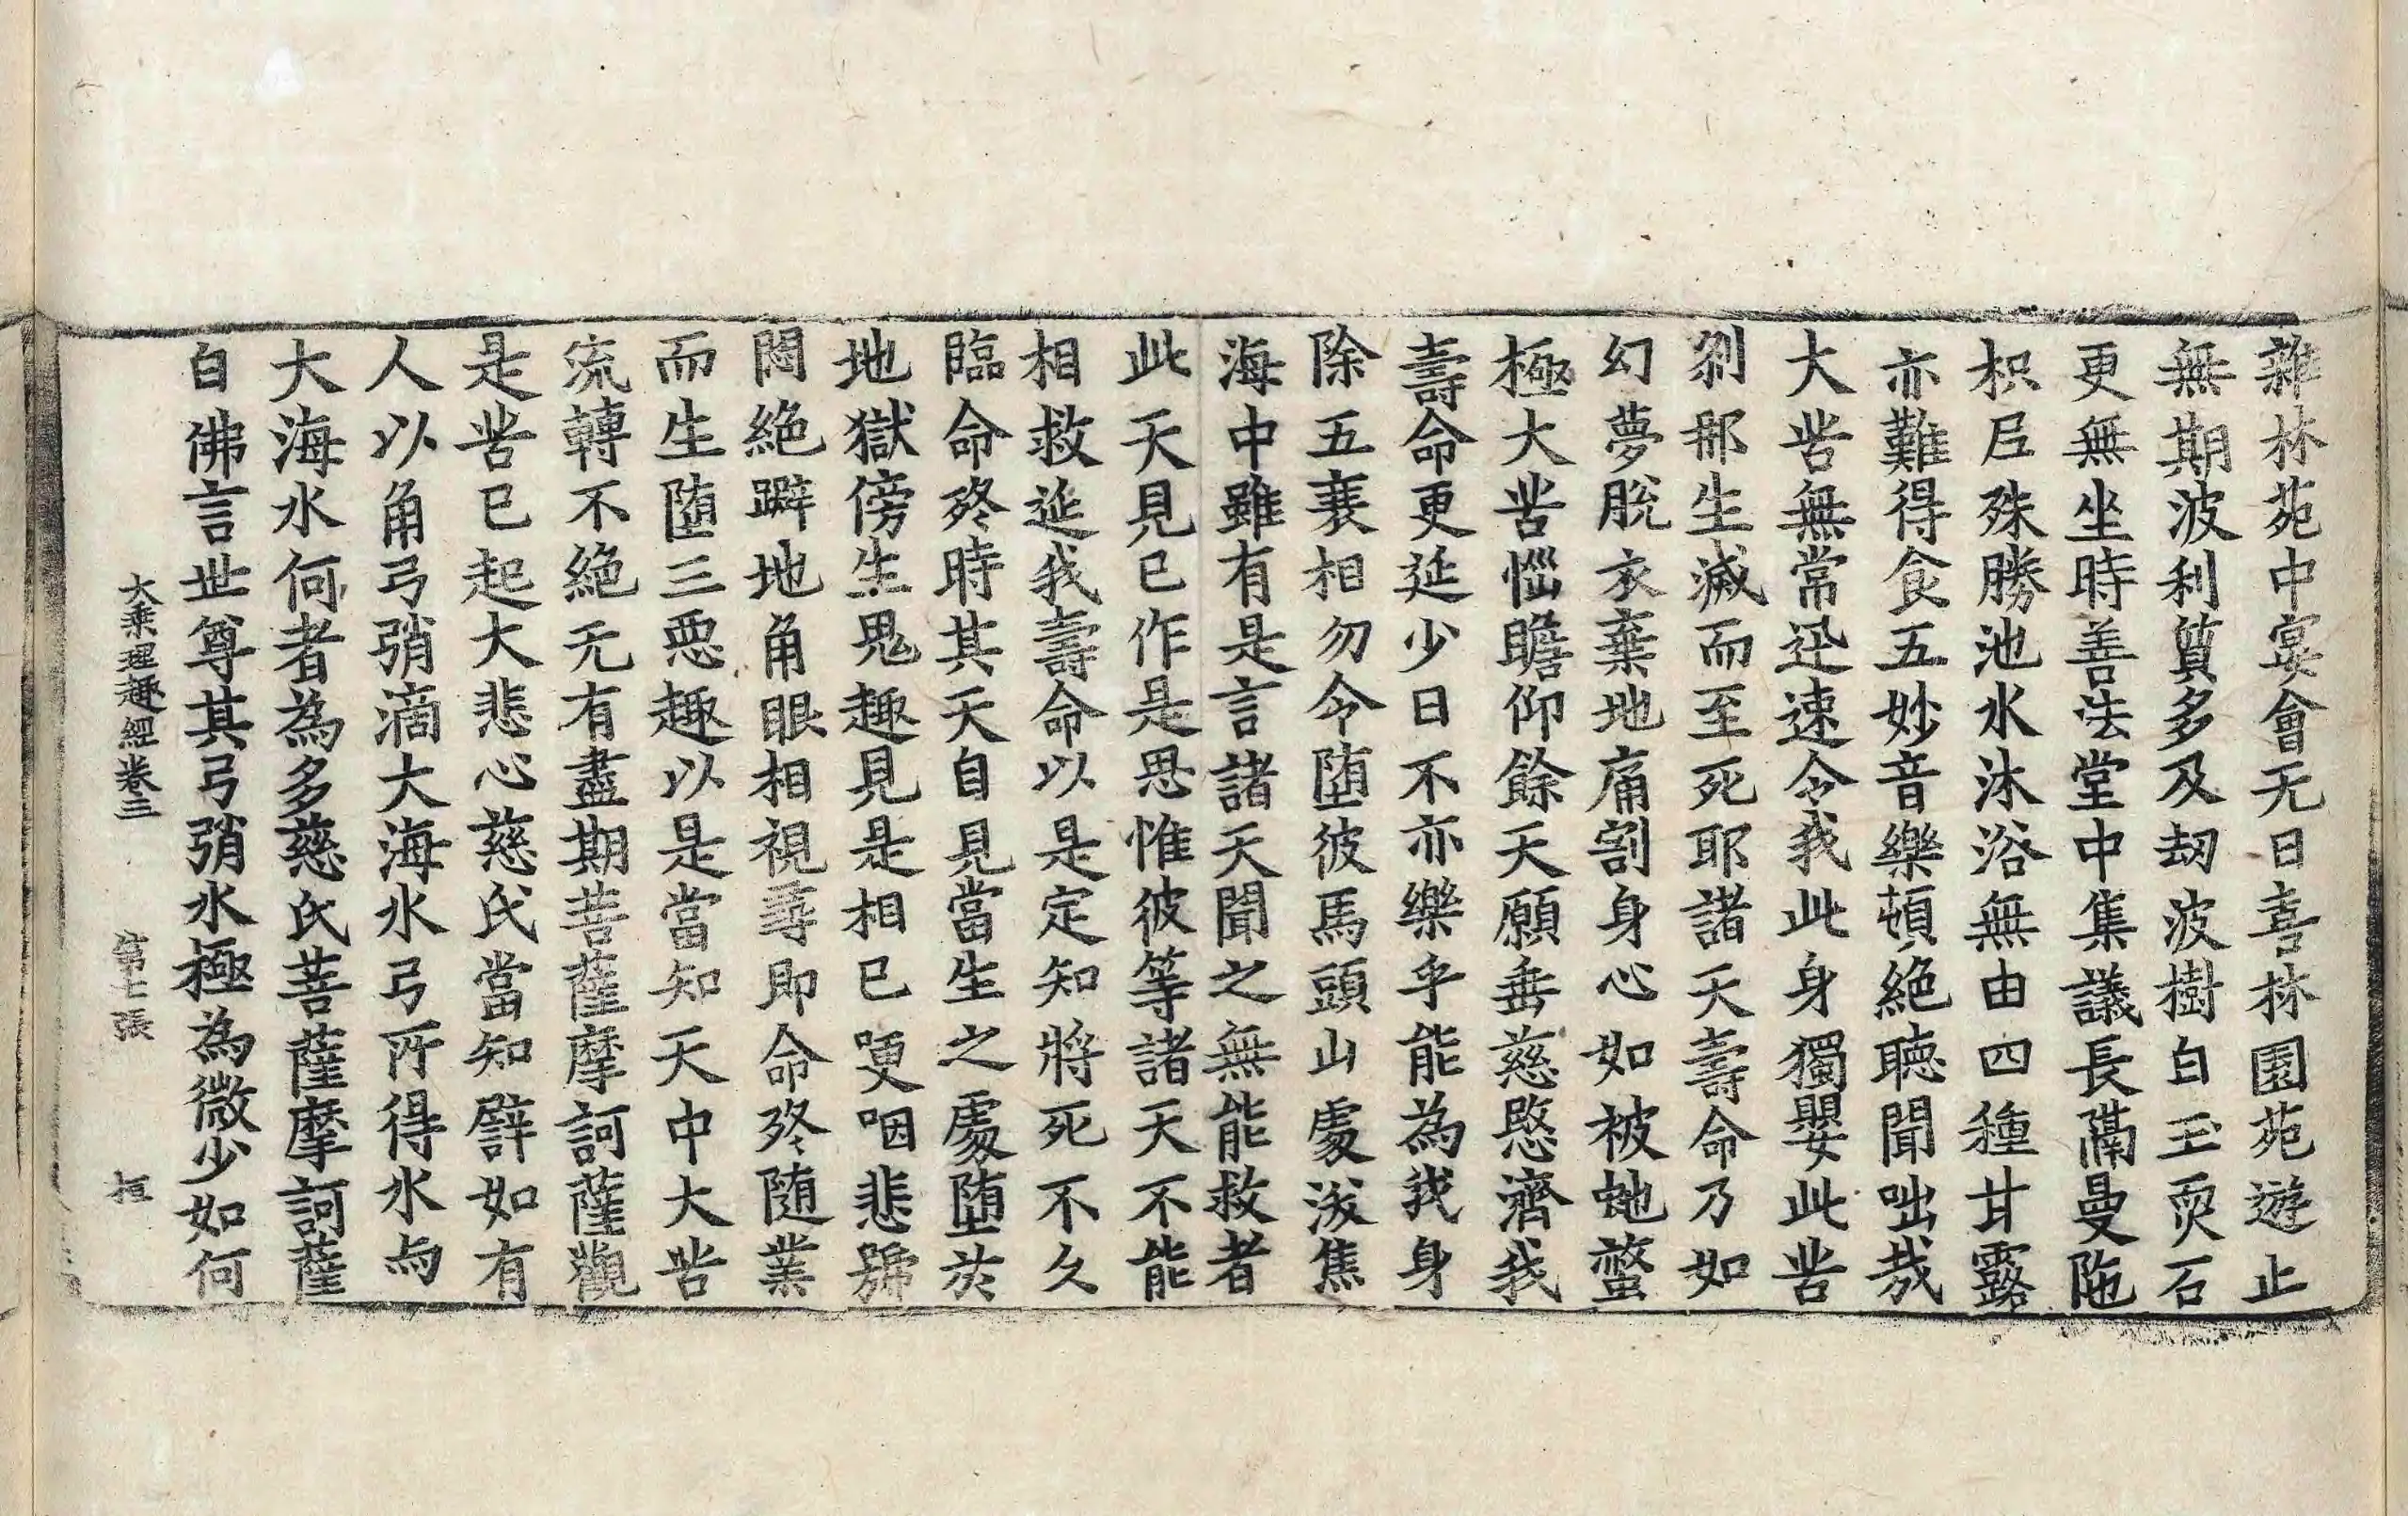 雜林苑中宴會无日喜林園苑遊止
無期波利質多及劫波樹白玉耎石
更無坐時善法堂中集議長隔曼陁
枳尼殊勝池水沐浴無由四種甘露
亦難得食五妙音樂頓絕聽聞咄哉
大苦無常迅速令我此身獨嬰此苦
刹那生滅而至死耶諸天壽命乃如
幻夢脫衣棄地痛割身心如被虵螫
極大苦惱瞻仰餘天願垂慈愍濟我
壽命更延少日不亦樂乎能為我身
除五衰相勿令墮彼馬頭山處沃焦
海中雖有是言諸天聞之無能救者
此天見已作是思惟彼等諸天不能
相救延我壽命以是定知將死不久
臨命終時其天自見當生之處墮於
地獄傍生鬼趣見是相已哽咽悲號
悶絕躃地角眼相視尋即命終隨業
而生墮三惡趣以是當知天中大苦
流轉不絕无有盡期菩薩摩訶薩觀
是苦已起大悲心慈氏當知譬如有
人以角弓弰滴大海水弓所得水与
大海水何者為多慈氏菩薩摩訶薩
白佛言世尊其弓弰水極為微少如何
大乘理趣經卷三 第七張 垣